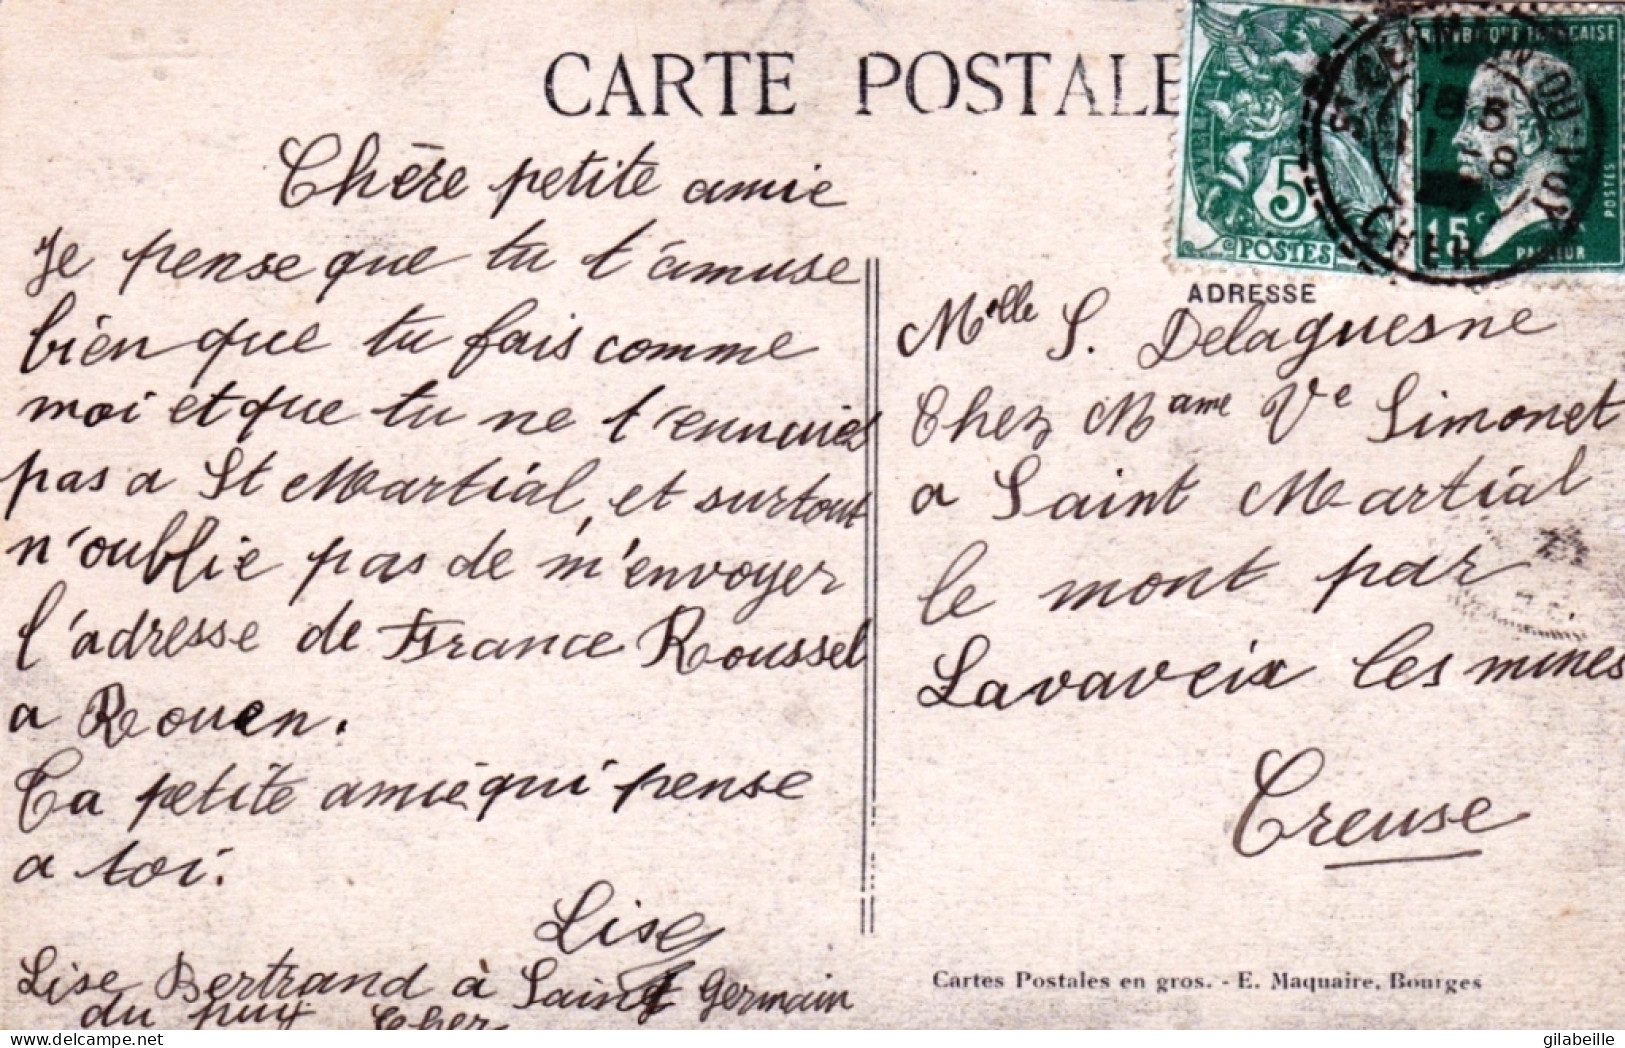 CARTE POSTALE
Chère petite amie
Je pense que tu t'amuse
bien que tu fais comme
moi et que tu ne t'ennuies
pas a St Martial, et surtout
n'oublie pas de m'envoyer
l'adresse de France Roussel
a Rouen.
Ta petite amie qui pense
a toi.
Lise
Lise Bertrand à Saint Germain
du puy Cher
5
POSTES
RÉPUBLIQUE FRANÇAISE
POSTES
15c
PASTEUR
ST GERMAIN-DU-PUY
CHER
ADRESSE
Melle S. Delaguesne
Chez Mame Ve Simonet
a Saint Martial
le mont par
Lavaveix les mines
Creuse
Cartes Postales en gros. - E. Maquaire, Bourges
gilabeille